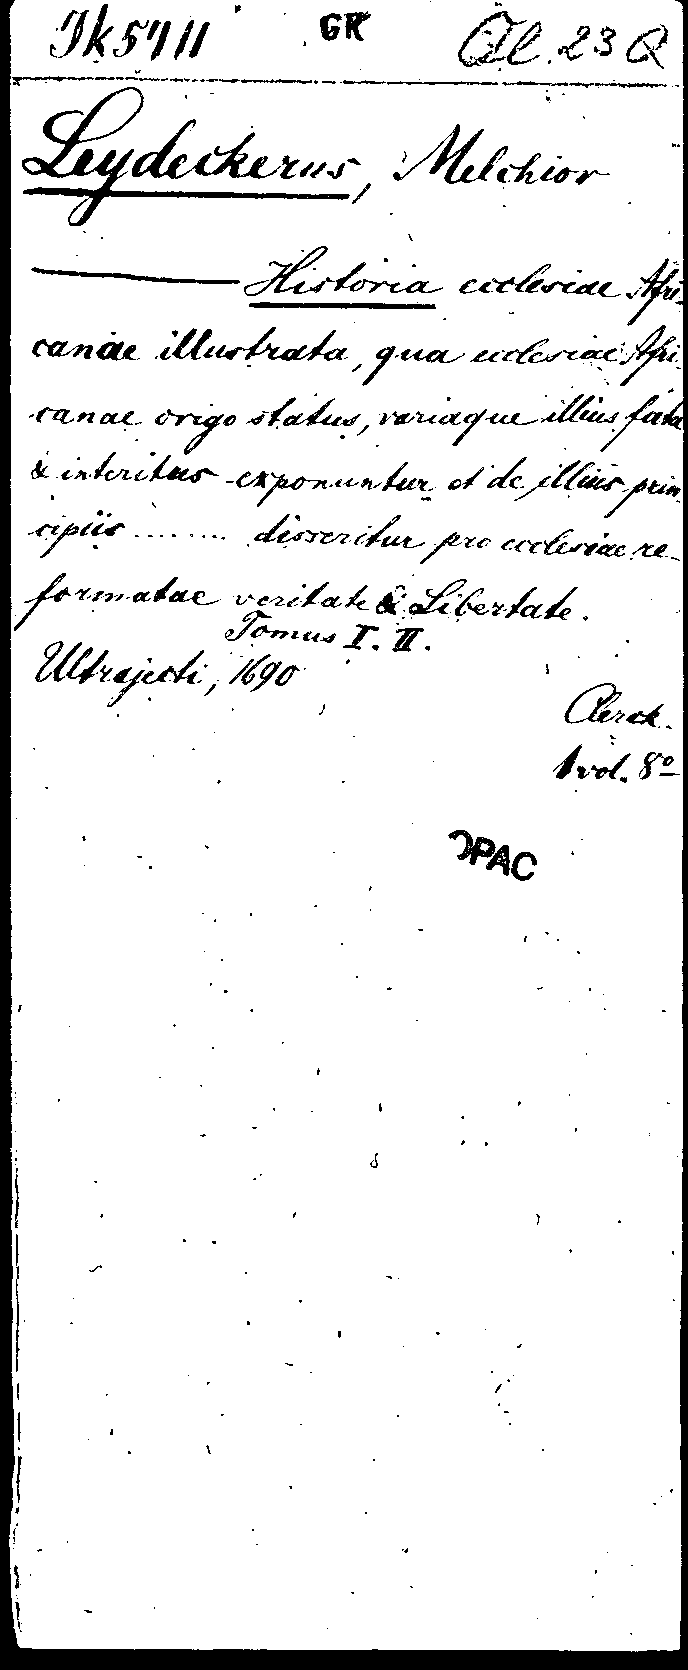 Ik 5711 GK Cl. 23 Q
Leydeckerus, Melchior
Historia ecclesiae Afri-
canae illustrata, qua ecclesiae Afri-
canae origo status, variaque illius fata
& interitus exponuntur et de illius prin-
cipiis ........ disseritur pro ecclesiae re-
formatae veritate & Libertate.
Tomus I. II.
Ultrajecti, 1690
1 vol. 8º
OPAC